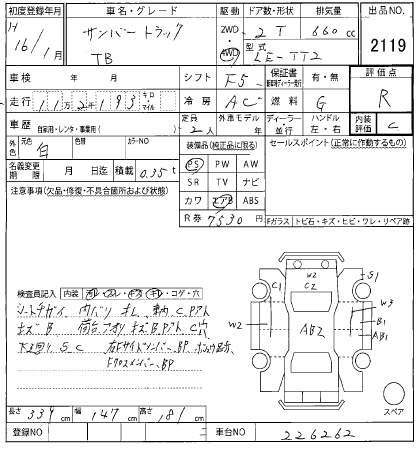 初度登録年月 車名・グレード 駆動 ドア数・形状 排気量 出品NO.
H 16/1月 サンバートラック 2WD・4WD 2 T 660cc 2119
TB 型式 LE-TT2
車検 年 月 シフト F5 保証書 有・無 評価点
走行 112千193 キロ・マイル 冷房 AC 燃料 G R
車歴 自家用・レンタ・事業用( ) 定員 2人 外車モデル ディーラー・並行 ハンドル 左・右 内装評価 C
外色 元色 白 色替 カラーNO 装備品(純正品に限る) セールスポイント(正常に作動するもの)
名義変更期限 月 日迄 積載 0.35t PS PW AW
注意事項(欠品・修復・不具合箇所及び状態) SR TV ナビ
カワ エアB ABS
R券 7530 円 Fガラス トビ石・キズ・ヒビ・ワレ・リペア跡
検査員記入 内装 汚レ・スレ・キズ・キレ・コゲ・穴
キズB 荷台アオリ キズB C穴
下廻りSC 右FサイドメンバーBP
FクロスメンバーBP
W2 C1 W2 C2 S1 W3 B1 AB1 AB2 W2
スペア
長さ 339cm 幅 147cm 高さ 181cm
登録NO 車台NO 226262